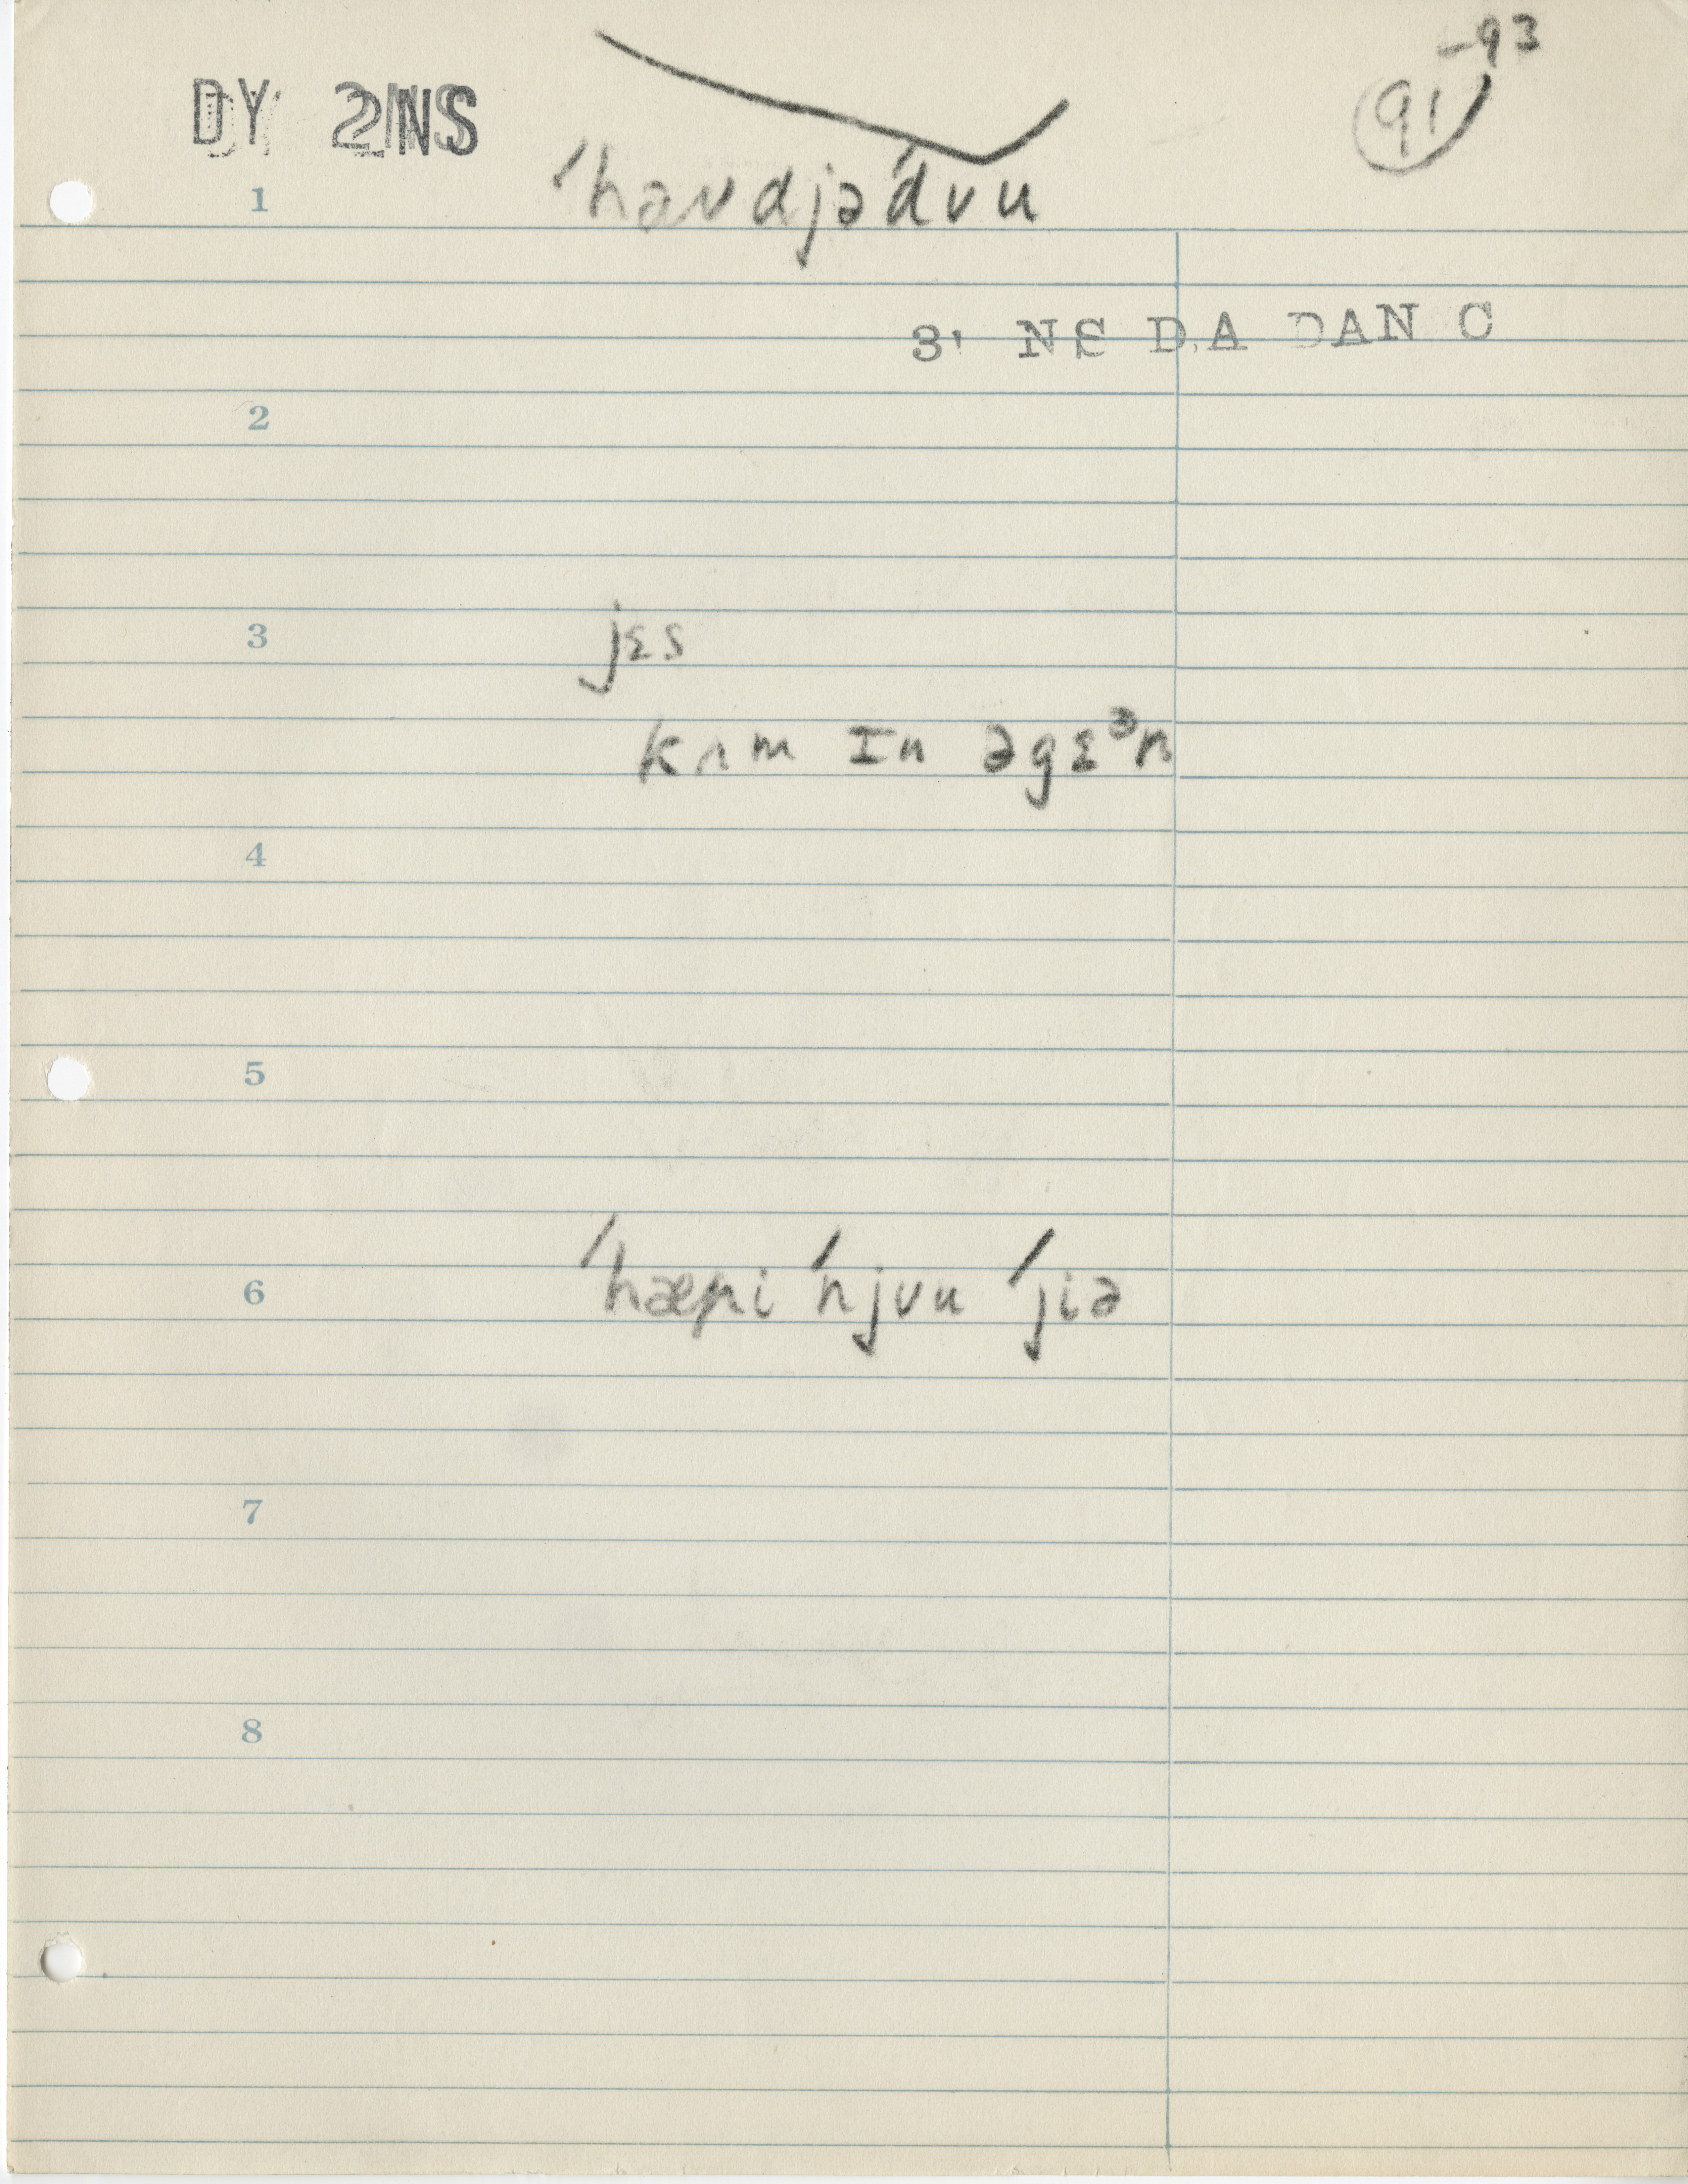 -93
DY 2NS
91
ˈhəʌdjəˈdʌu
1
3' NS D.A DAN C
2
3 jɛs
kʌm ɪn əgɛᵊn
4
5
6 ˈhæpi ˈnjʌu ˈjiə
7
8